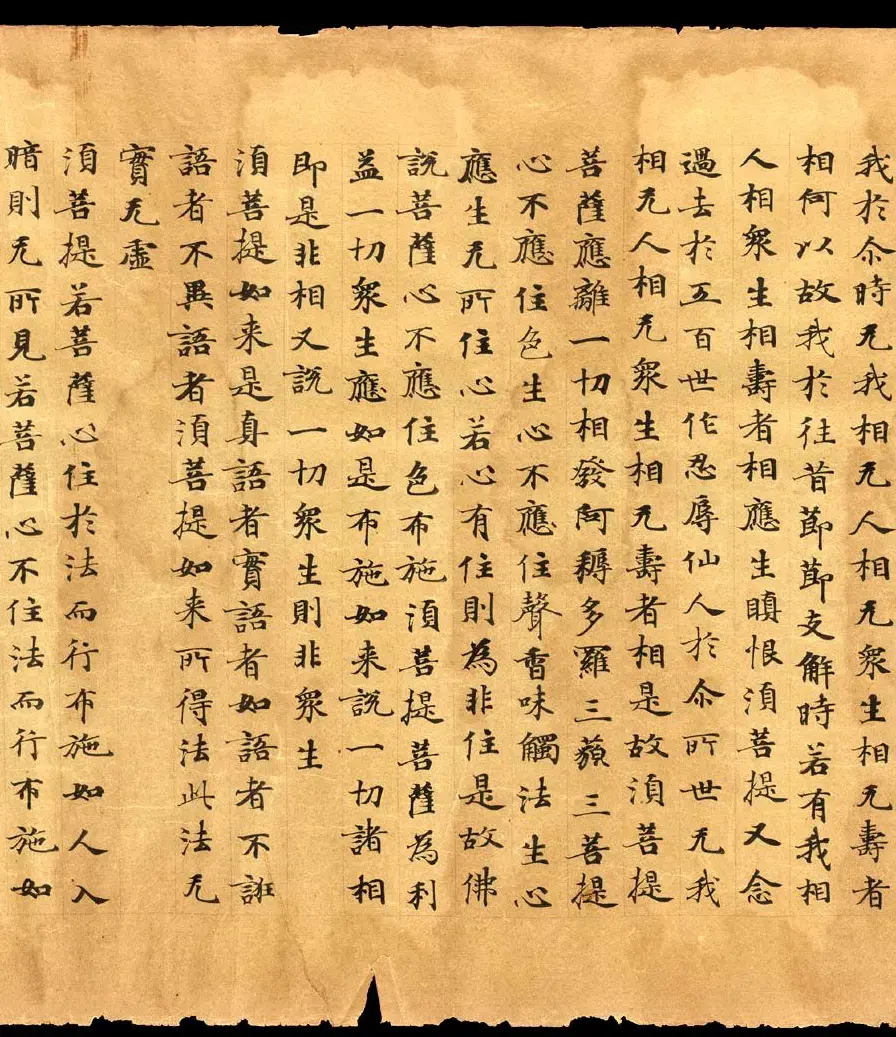 我於尒時无我相无人相无衆生相无壽者
相何以故我於往昔莭莭支解時若有我相
人相衆生相壽者相應生瞋恨湏菩提又念
過去於五百世作忍辱仙人於尒所世无我
相无人相无衆生相无壽者相是故湏菩提
菩薩應離一切相發阿耨多羅三藐三菩提
心不應住色生心不應住聲香味觸法生心
應生无所住心若心有住則為非住是故佛
說菩薩心不應住色布施湏菩提菩薩為利
益一切衆生應如是布施如来說一切諸相
即是非相又說一切衆生則非衆生
湏菩提如来是真語者實語者如語者不誑
語者不異語者湏菩提如来所得法此法无
實无虛
湏菩提若菩薩心住於法而行布施如人入
暗則无所見若菩薩心不住法而行布施如